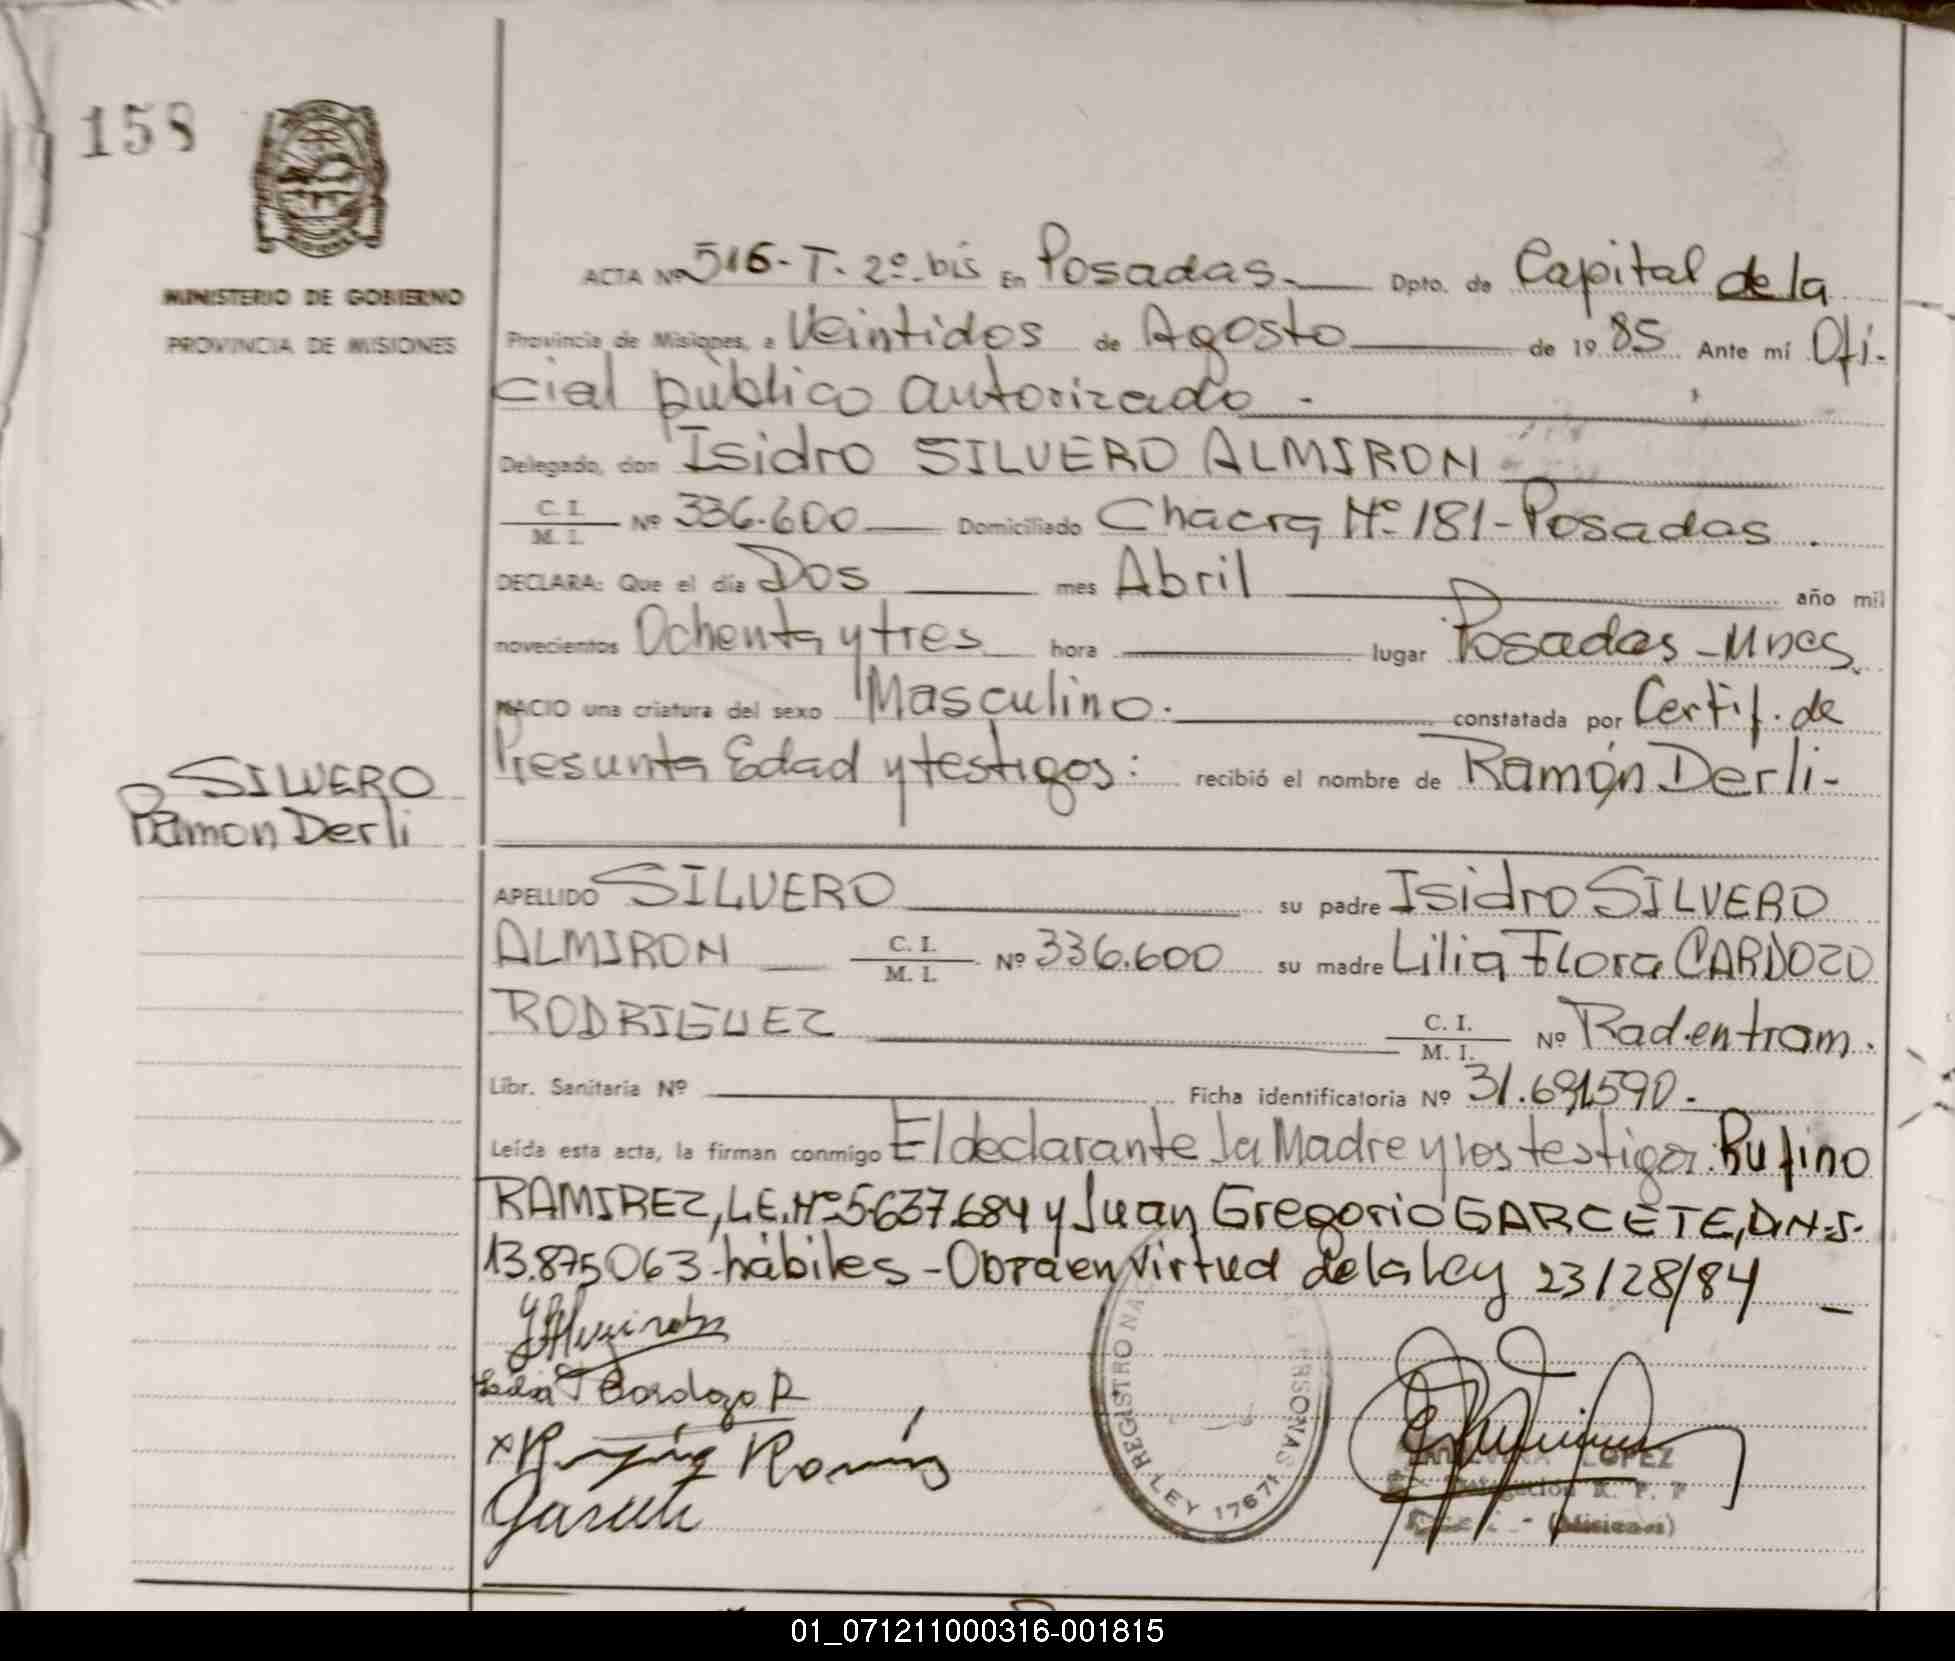 158
MINISTERIO DE GOBIERNO
PROVINCIA DE MISIONES
ACTA Nº 516-T. 2º. bis En Posadas. Dpto. de Capital de la
Provincia de Misiones, a Veintidos de Agosto de 1985 Ante mí Ofi-
cial público autorizado -
Delegado, don Isidro SILVERO ALMIRON
C. I.
M. I. Nº 336.600 Domiciliado Chacra Nº 181-Posadas.
DECLARA: Que el día Dos mes Abril año mil
novecientos Ochenta y tres hora lugar Posadas-Mnes.
NACIO una criatura del sexo Masculino. constatada por Certif. de
Presunta Edad y testigos: recibió el nombre de Ramón Derli-
SILVERO
Ramon Derli
APELLIDO SILVERO su padre Isidro SILVERO
ALMIRON C. I. M. I. Nº 336.600 su madre Lilia Flora CARDOZO
RODRIGUEZ C. I. M. I. Nº Rad.en tram.
Libr. Sanitaria Nº Ficha identificatoria Nº 31.691590-
Leída esta acta, la firman conmigo El declarante la Madre y los testigos: Rufino
RAMIREZ, L.E. Nº 5.637.684 y Juan Gregorio GARCETE, D.N.I.
13.875063-hábiles-Obra en virtud de la ley 23128/84
Cardozo R
Garcete
REGISTRO NA PERSONAS
LEY 17671
LOPEZ
Delegación R. P. P
(Misiones)
01_071211000316-001815